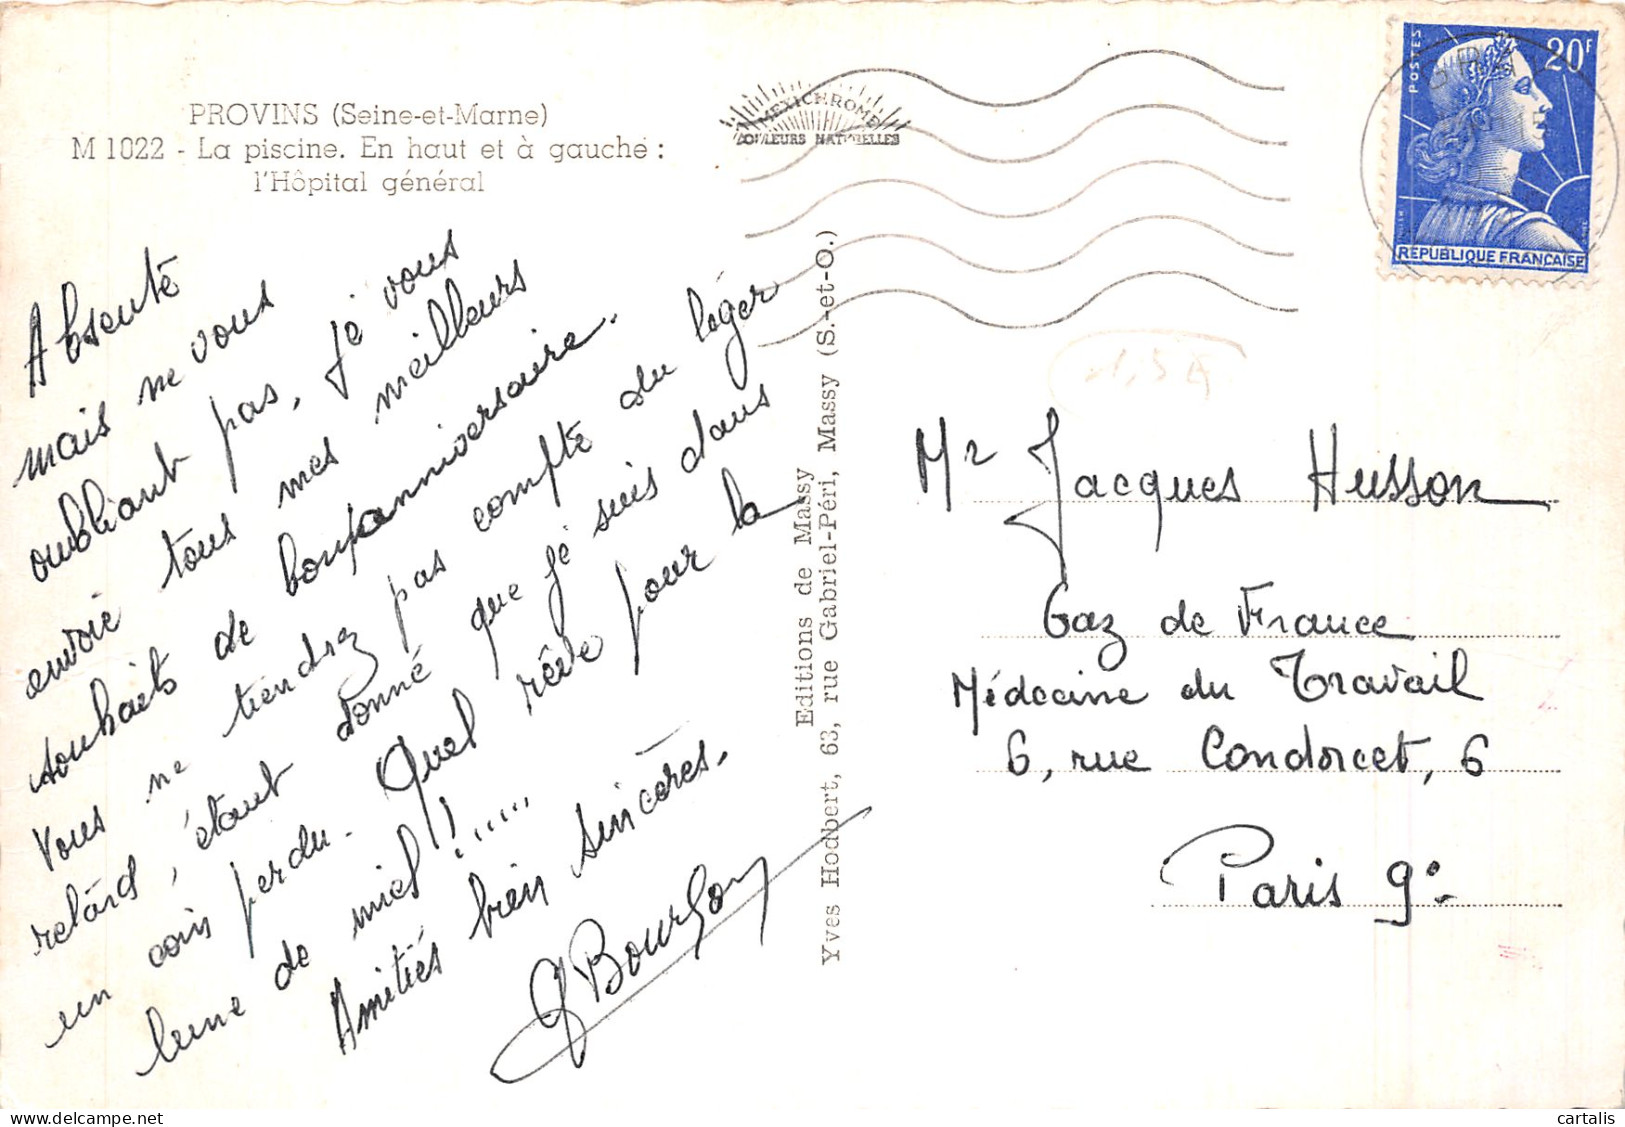 PROVINS (Seine-et-Marne)
M 1022 - La piscine. En haut et à gauche :
l'Hôpital général
Absente
mais ne vous
oubliant pas, je vous
envoie tous mes meilleurs
souhaits de bon anniversaire.
Vous ne tiendrez pas compte du léger
retard, étant donné que je suis dans
un coin perdu. Quel rêve pour la
lune de miel !.....
Amitiés bien sincères.
Yves Hodbert, 63, rue Gabriel-Péri, Massy (S.-et-O.)
Editions de Massy
MEXICHROME
COULEURS NATURELLES
POSTES
20F
REPUBLIQUE FRANÇAISE
Mr Jacques Husson
Gaz de France
Médecine du Travail
6, rue Condorcet, 6
Paris 9e
cartalis